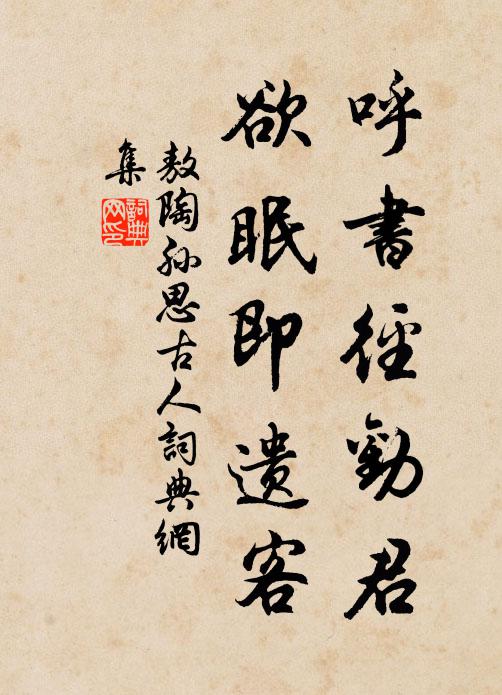 呼書徑勸君
欲眠即遺客
敖陶孙思古人詞典網
集
詞典
网印